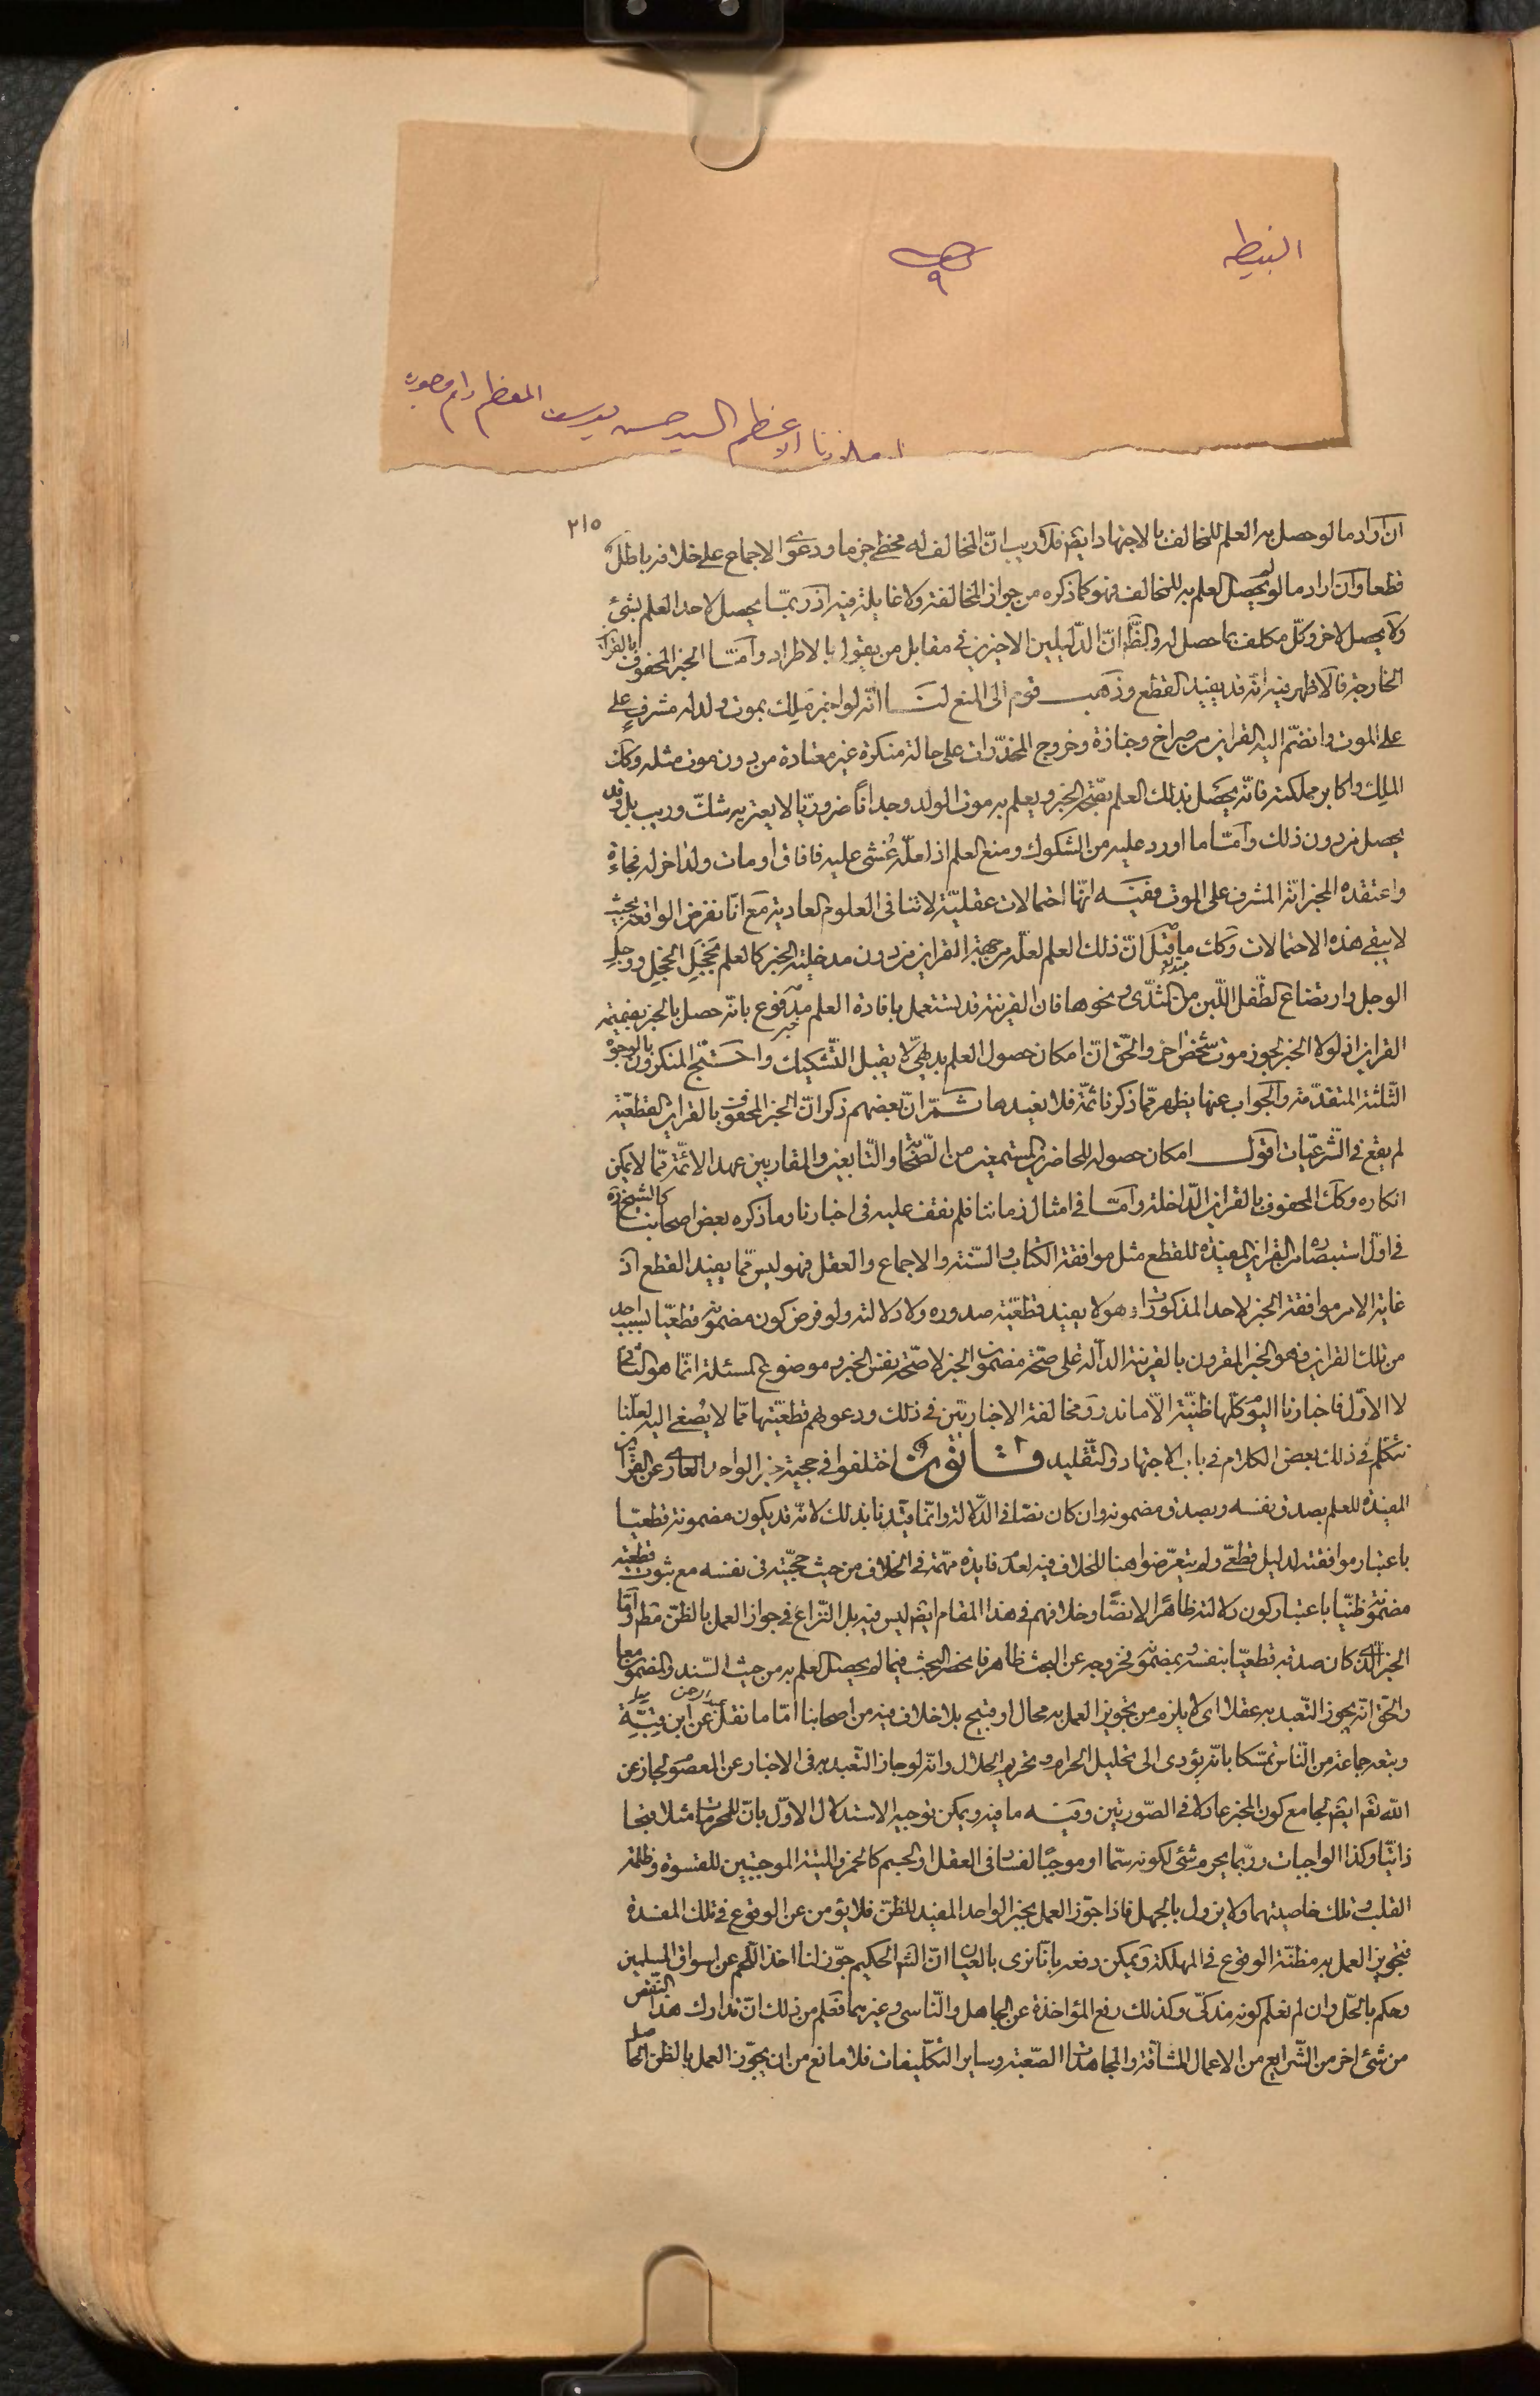 ص ٩
السيد حسن يوسف المعظم دام
٢١٥
ان اراد ما لو حصل به العلم للمخالف بالاجتهاد ايض فلا ريب انّ المخالف له مخطئ جزما ودعوى الاجماع على خلافه باطل
قطعا وان اراد ما لو لم يحصل العلم به للمخالف فهو كما ذكره من جواز المخالفة ولا غايلة فيه اذ ربمّا يحصل لاحد العلم بشئ
ولا يحصل لاخر وكلّ مكلف بما حصل له والظّ انّ الدّليلين الاخيرين في مقابل من يقول بالاطراد وامّا الخبر المحفوف بالقراين
الخارجة فالاظهر فيه انّه قد يفيد القطع وذهب قوم الى المنع لنا انّه لو اخبر ملك بموت ولد له مشرف على
على الموت وانضمّ اليه القراين من صراخ وجنازة وخروج المخدّرات على حالة منكرة غير معتادة من دون موت مثله وكك
الملك واكابر مملكته فانّه يحصل بذلك العلم بصّحة الخبر ويعلم به موت الولد وجدانًا ضروريّا لا يعتريه شكّ وريب بل وقد
يحصل من دون ذلك وامّا ما اورد عليه من الشكوك ومنع العلم اذ لعلّه غُشي عليه فافاق او مات ولد اخر له فجاءة
واعتقده المخبر انّه المشرف على الموت ففيه انّها احتمالات عقليّة لا تنافى العلوم العادية مع انّا نفرض الواقعة بحيث
لا يبقى هذه الاحتمالات وكك ما قيل انّ ذلك العلم لعلّه من جهة القراين من دون مدخلية الخبر كالعلم بخجل الخجل ووجل
الوجل وارتضاع الطّفل اللّبن من الثدّى ونحوها فان القرينة قد تستعمل بافادة العلم مدفوع بانّه حصل بالخبر بضميمة
القراين اذ لولا الخبر لجوز موت شخص اخر والحّق انّ امكان حصول العلم بديهيّ لا يقبل التشكيك واحتج المنكرون بالوجوه
الثّلثة المتقدّمة والجواب عنها يظهر ممّا ذكرنا ثمّة فلا نعيدها ثمّ انّ بعضهم ذكر انّ الخبر المحفوف بالقراين القطعيّة
لم يقع في الشّرعيّات اقول امكان حصوله للحاضرين المستمعين من الصّحابة والتّابعين والمقاربين عهد الائمّة ممّا لا يمكن
انكاره وكك المحفوف بالقراين الدّاخلة وامّا في امثال زماننا فلم نقف عليه في اخبارنا وما ذكره بعض اصحابنا كالشيخ ره
في اوّل استبصاره من القراين المفيدة للقطع مثل موافقة الكتاب والسّنة والاجماع والعقل فهو ليس ممّا يفيد القطع اذ
غاية الامر موافقة الخبر لاحد المذكورات وهو لا يفيد قطعيّة صدوره ولا دلالته ولو فرض كون مضمونه قطعيّا بسبب احد
من تلك القراين فهو الخبر المقرون بالقرينة الدالّة على صحّة مضمون الخبر لا صحّة نفس الخبر وموضوع المسئلة انّما هو الثاني
لا الاوّل فاخبارنا اليوم كلّها ظنيّة الّا ما ندر ومخالفة الاخباريّين في ذلك ودعويهم قطعيّتها ممّا لا يُصغى اليه لعلّنا
نتكلّم في ذلك بعض الكلام في باب الاجتهاد والتّقليد قانون اختلفوا في حجية خبر الواحد العاري عن القراين
المفيدة للعلم بصدق نفسه وبصدق مضمونه وان كان نصّا في الدّلالة وانّما قيّدنا بذلك لانّه قد يكون مضمونه قطعيّا
باعتبار موافقته لدليل قطعّي ولم يتعرّضوا هنا للخلاف فيه لعدم فايدة مهّمة في الخلاف من حيث حجّيته في نفسه مع ثبوت قطعيّة
مضمونه ظنّيا باعتبار كون دلالته ظاهرًا لا نصًّا وخلافهم في هذا المقام ايض ليس فيه بل النّزاع في جواز العمل بالظنّ مط وامّا
الخبر الّذي كان صدقه قطعيّا بنفسه او بمضمونه فخروجه عن البحث ظاهر فانحصر البحث فيما لم يحصل العلم به من حيث السّند والمضمون معا
والحّق انّه يجوز التّعبد به عقلا اى لا يلزم من تجويز العمل به محال او قبيح بلا خلاف فيه من اصحابنا امّا ما نقل عن ابن قبة
وتبعه جماعة من النّاس تمسّكا بانّه يؤدى الى تحليل الحرام وتحريم الحلال وانّه لو جاز التّعبد به في الاخبار عن المعصوم لجاز عن
الله تعالى ايض لجامع كون المخبر عادلا في الصّورتين وفيه ما فيه ويمكن توجيه الاستدلال الاوّل بانّ للمحرمات مثلا قبحا
ذاتيّا وكذا الواجبات وربّما يحرم شئ لكونه سمّا او موجبًا لفساد في العقل او الجسم كالخمر والميتة الموجبتين للقسوة وظلمة
القلب وتلك خاصيتهما ولا يزول بالجهل فاذا جوّز العمل بخبر الواحد المفيد للظنّ فلا يؤمن عن الوقوع في تلك المفسدة
فتجويز العمل به مظنّة الوقوع في المهلكة ويمكن دفعه بانّا نرى بالعيان انّ الشارع الحكيم جوّز لنا اخذ اللّحم عن اسواق المسلمين
وحكم بالحلّ وان لم نعلم كونه مذكّى وكذلك رفع المؤاخذة عن الجاهل والنّاسي وغيرهما فعلم من ذلك انّ تدارك هذا النّقص
من شئ اخر من الشّرايع من الاعمال الشاقّة والمجاهدات الصّعبة وساير التكّليفات فلا مانع من ان يجوّز العمل بالظن الحاصل